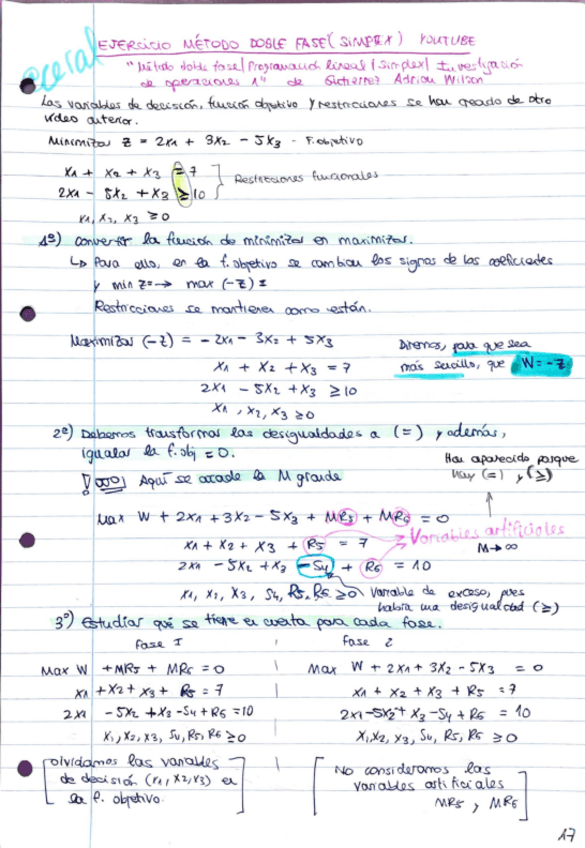 @ceral
EJERCICIO MÉTODO DOBLE FASE (SIMPLEX) YOUTUBE
"Método doble fase | Programación lineal | Simplex | Investigación
de operaciones 1" de Gutierrez Adrian Wilson
Las variables de decisión, función objetivo y restricciones se han creado de otro
video anterior.
Minimizar Z = 2x1 + 3x2 - 5x3 - F. objetivo
x1 + x2 + x3 = 7
2x1 - 5x2 + x3 ≥ 10
Restricciones funcionales
x1, x2, x3 ≥ 0
1º) convertir la función de minimizar en maximizar.
↳ Para ello, en la f. objetivo se cambian los signos de los coeficientes
y min z = → max (-z) =
Restricciones se mantienen como están.
Maximizar (-z) = -2x1 - 3x2 + 5x3
x1 + x2 + x3 = 7
2x1 - 5x2 + x3 ≥ 10
x1, x2, x3 ≥ 0
Diremos, para que sea
más sencillo, que W = -z
2º) Debemos transformar las desigualdades a (=) y además,
igualar la f. obj = 0.
¡ojo! Aquí se añade la M grande
Han aparecido porque
hay (=) y (≥)
Max W + 2x1 + 3x2 - 5x3 + MR5 + MR6 = 0
Variables artificiales
M→∞
x1 + x2 + x3 + R5 = 7
2x1 - 5x2 + x3 - S4 + R6 = 10
x1, x2, x3, S4, R5, R6 ≥ 0
Variable de exceso, pues
había una desigualdad (≥)
3º) Estudiar qué se tiene en cuenta para cada fase.
Fase I
Max W + MR5 + MR6 = 0
x1 + x2 + x3 + R5 = 7
2x1 - 5x2 + x3 - S4 + R6 = 10
x1, x2, x3, S4, R5, R6 ≥ 0
olvidamos las variables
de decisión (x1, x2, x3) en
la f. objetivo.
Fase 2
Max W + 2x1 + 3x2 - 5x3 = 0
x1 + x2 + x3 + R5 = 7
2x1 - 5x2 + x3 - S4 + R6 = 10
x1, x2, x3, S4, R5, R6 ≥ 0
No consideramos las
variables artificiales
MR5, MR6
17